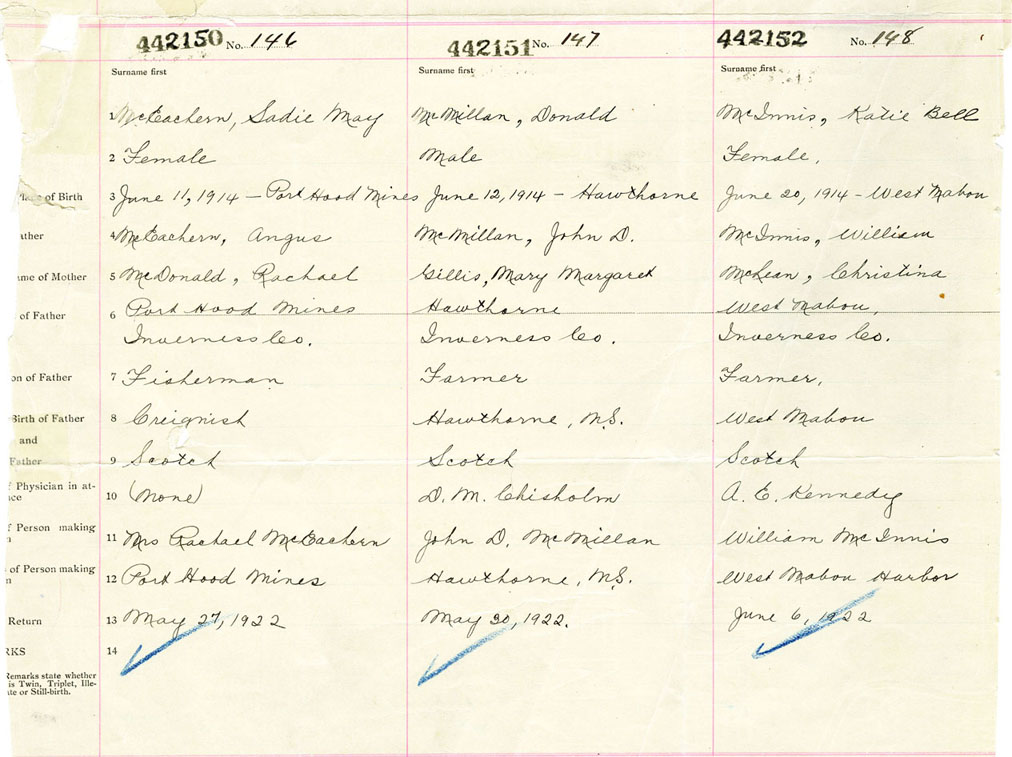 442150 No. 146 442151 No. 147 442152 No. 148
Surname first Surname first Surname first
1 McEachern, Sadie May McMillan, Donald McInnis, Katie Bell
2 Female Male Female.
of Birth 3 June 11, 1914 — Port Hood Mines June 12, 1914 — Hawthorne June 20, 1914 - West Mabou
ather 4 McEachern, Angus McMillan, John D. McInnis, William
me of Mother 5 McDonald, Rachael Gillis, Mary Margaret McLean, Christina
of Father 6 Port Hood Mines Hawthorne West Mabou,
Inverness Co. Inverness Co. Inverness Co.
on of Father 7 Fisherman Farmer Farmer.
Birth of Father 8 Creignish Hawthorne, N.S. West Mabou
and
Father 9 Scotch Scotch Scotch
f Physician in at-
nce 10 (None) D. M. Chisholm A. E. Kennedy
f Person making
n 11 Mrs Rachael McEachern John D. McMillan William McInnis
s of Person making
n 12 Port Hood Mines Hawthorne, N.S. West Mabou Harbor
Return 13 May 27, 1922 May 30, 1922. June 6, 1922
RKS 14
Remarks state whether
is Twin, Triplet, Ille-
ate or Still-birth.